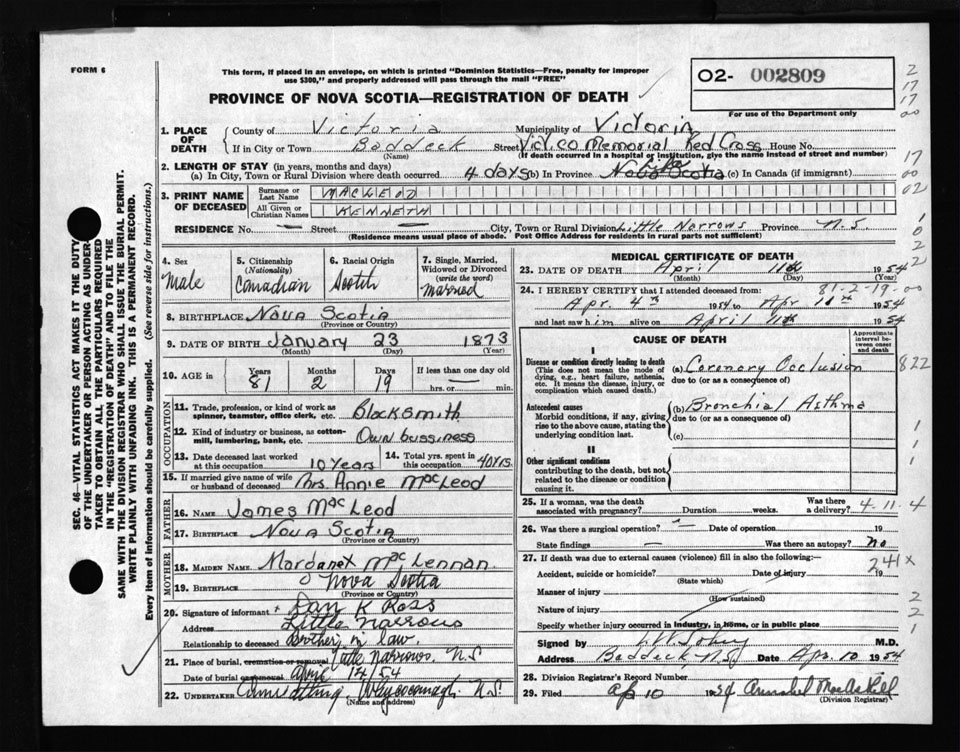 FORM 6
This form, if placed in an envelope, on which is printed "Dominion Statistics—Free, penalty for improper
use $300," and properly addressed will pass through the mail "FREE"
PROVINCE OF NOVA SCOTIA—REGISTRATION OF DEATH
O2- 002809
For use of the Department only
1. PLACE OF DEATH
County of Victoria Municipality of Victoria
If in City or Town Baddeck Street Vict. co Memorial Red Cross House No.
(Name) (If death occurred in a hospital or institution, give the name instead of street and number)
2. LENGTH OF STAY (in years, months and days)
(a) In City, Town or Rural Division where death occurred 4 days (b) In Province Nova Scotia life (c) In Canada (if immigrant)
3. PRINT NAME OF DECEASED
Surname or Last Name MACLEOD
All Given or Christian Names KENNETH
RESIDENCE No. — Street — City, Town or Rural Division Little Narrows Province N.S.
(Residence means usual place of abode. Post Office Address for residents in rural parts not sufficient)
4. Sex
Male
5. Citizenship
(Nationality)
Canadian
6. Racial Origin
Scotch
7. Single, Married, Widowed or Divorced
(write the word)
married
8. BIRTHPLACE Nova Scotia
(Province or Country)
9. DATE OF BIRTH January 23 1873
(Month) (Day) (Year)
10. AGE in Years Months Days If less than one day old
81 2 19 — hrs. or min.
OCCUPATION
11. Trade, profession, or kind of work as
spinner, teamster, office clerk, etc. Blacksmith
12. Kind of industry or business, as cotton-
mill, lumbering, bank, etc. Own bussiness
13. Date deceased last worked
at this occupation 10 Years
14. Total yrs. spent in
this occupation 40 Yrs.
15. If married give name of wife
or husband of deceased Mrs. Annie MacLeod
FATHER
16. NAME James MacLeod
17. BIRTHPLACE Nova Scotia
(Province or Country)
MOTHER
18. MAIDEN NAME Margaret MacLennan
19. BIRTHPLACE Nova Scotia
(Province or Country)
20. Signature of informant x Dan K Ross
Address Little Narrows
Relationship to deceased Brother in law.
21. Place of burial, cremation or removal Little Narrows. N.S
Date of burial or removal April 14/54
22. UNDERTAKER Whycocomagh. N.S.
(Name and address)
MEDICAL CERTIFICATE OF DEATH
23. DATE OF DEATH April 11th 1954
24. I HEREBY CERTIFY that I attended deceased from: 81-2-19
Apr. 4th 1954 to Apr 11th 1954
and last saw him alive on April 11th 1954
CAUSE OF DEATH
Approximate interval between onset and death
I
Disease or condition directly leading to death
(This does not mean the mode of dying, e.g., heart failure, asthenia, etc. It means the disease, injury, or complication which caused death.)
(a) Coronary Occlusion
due to (or as a consequence of)
Antecedent causes
Morbid conditions, if any, giving rise to the above cause, stating the underlying condition last.
(b) Bronchial Asthma
due to (or as a consequence of)
(c)
II
Other significant conditions
contributing to the death, but not related to the disease or condition causing it.
25. If a woman, was the death
associated with pregnancy? Duration weeks. Was there a delivery? 4-11-4
26. Was there a surgical operation? — Date of operation 19
State findings — Was there an autopsy? No
27. If death was due to external causes (violence) fill in also the following:—
Accident, suicide or homicide? Date of injury 19
(State which)
Manner of injury
(How sustained)
Nature of injury
Specify whether injury occurred in industry, in home, or in public place
Signed by M.D.
Address Baddeck N.S Date Apr. 10 1954
28. Division Registrar's Record Number
29. Filed Ap 10 1954 Annabel MacAskill
(Division Registrar)
822
241X
SEC. 46—VITAL STATISTICS ACT MAKES IT THE DUTY
OF THE UNDERTAKER OR PERSON ACTING AS UNDER-
TAKER TO OBTAIN ALL THE PARTICULARS REQUIRED
IN THE "REGISTRATION OF DEATH" AND TO FILE THE
SAME WITH THE DIVISION REGISTRAR WHO SHALL ISSUE THE BURIAL PERMIT.
WRITE PLAINLY WITH UNFADING INK. THIS IS A PERMANENT RECORD.
Every item of information should be carefully supplied. (See reverse side for instructions.)
2
17
17
00
17
00
02